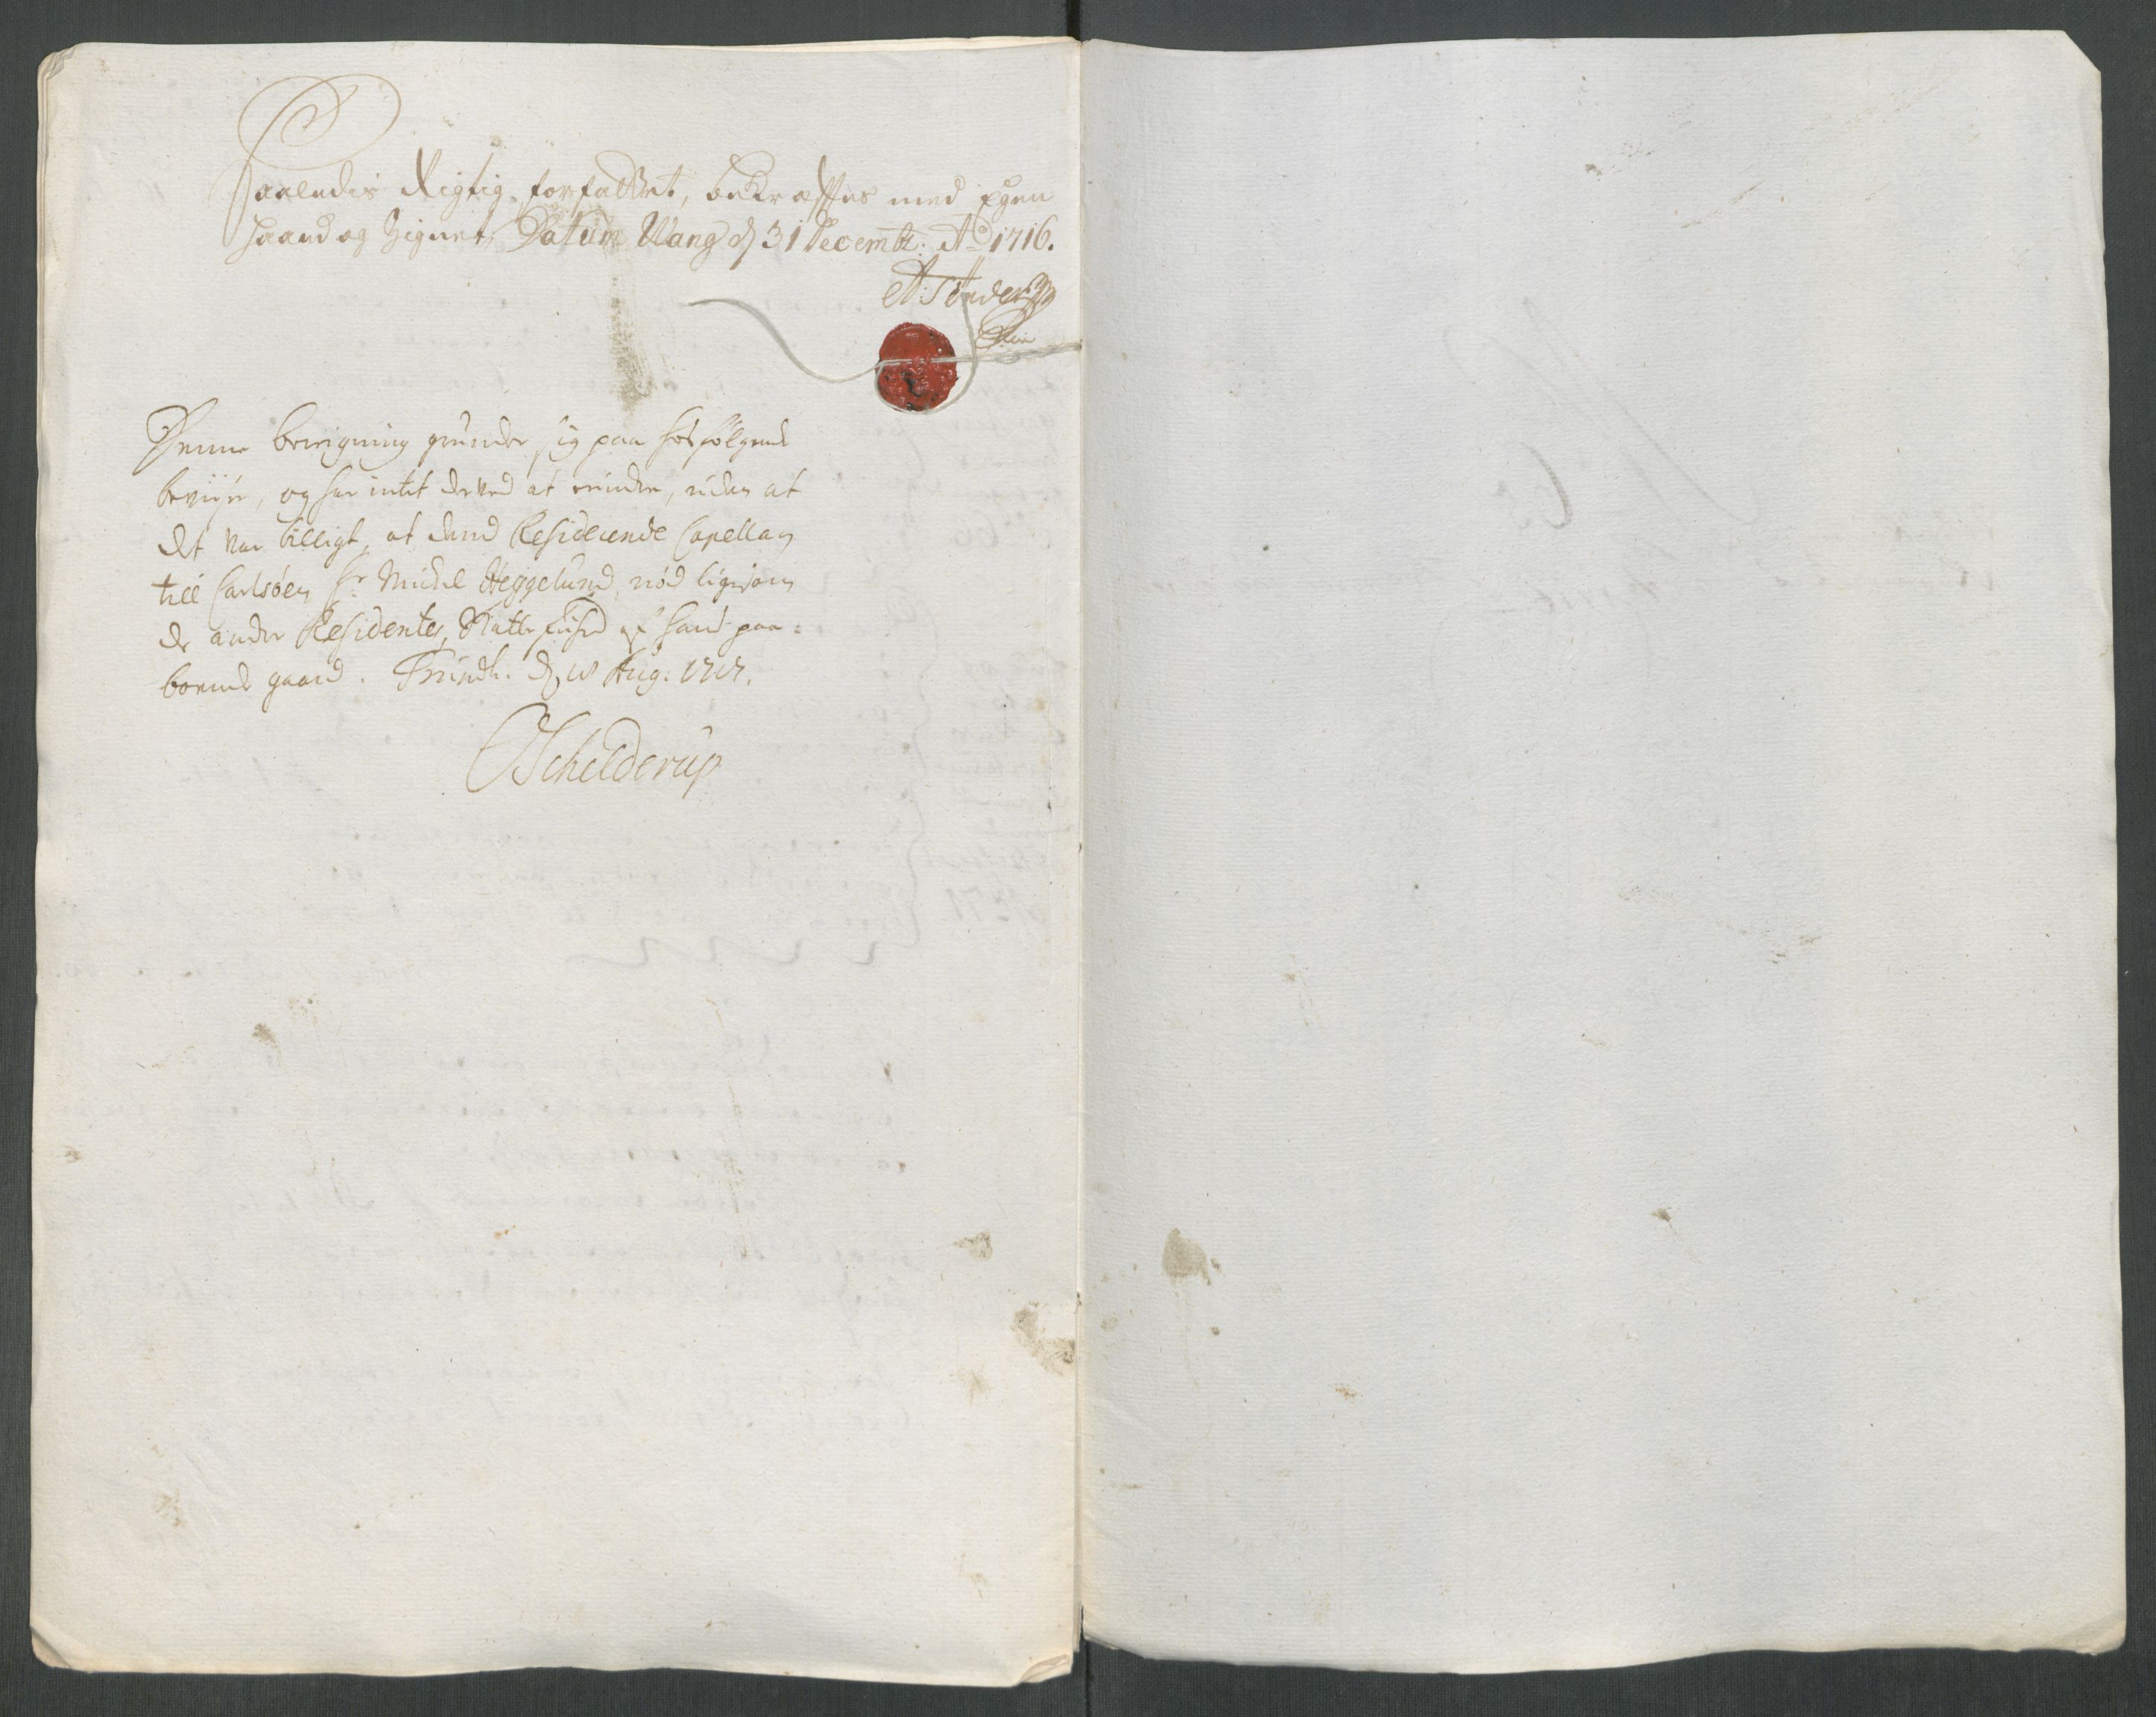 Saaledis Rigtig forfattet, bekræfftes med Egen
haand og Zignet, Datum Wang d 31 Decembr: Ao 1716.
A: Tønder
Denne beregning grunder sig paa hosfølgende
beviiser, og har intet derved at erindre, uden at
det var billigt, at dend Residerende Capellan
till Carlsøen Hr Michel Heggelund, nød ligesom
de andre Residenter, Skatte friehed af hans paa-
boende gaard. Trundh. d 18 Aug: 1717.
Schelderup